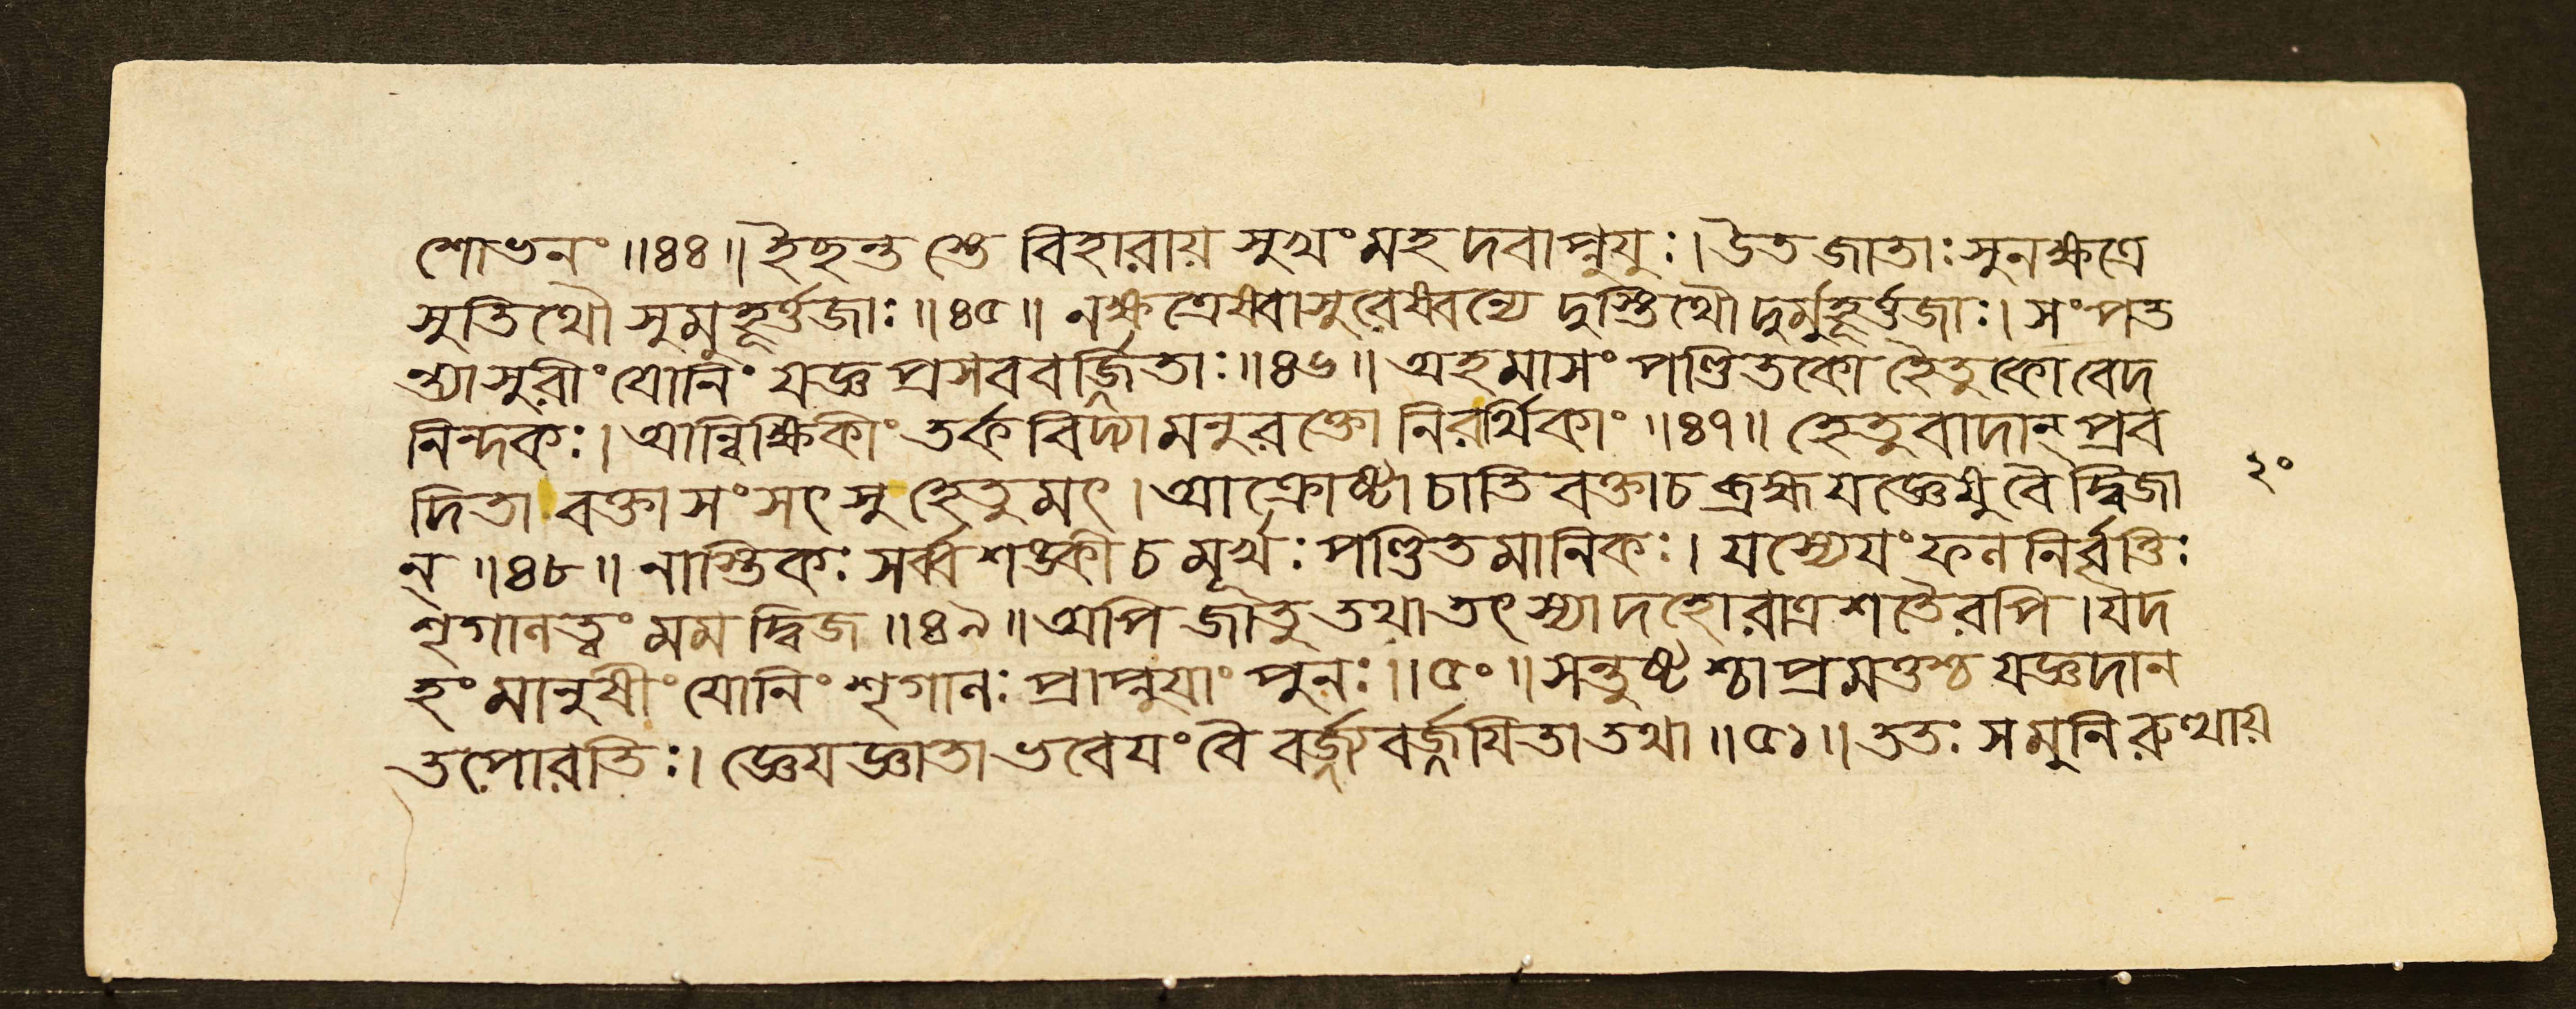 শোভনং ॥৪৪॥ ইচ্ছন্তস্তে বিহারায় সুখং মহদবাপ্নুযুঃ। উত জাতাঃ সুনক্ষত্রে
সুতিথৌ সুমুহূর্ত্তজাঃ ॥৪৫॥ নক্ষত্রেষ্বাসুরেষ্বন্যে দুস্তিথৌ দুর্মুহূর্ত্তজাঃ। সংপত
ন্ত্যাসুরীং যোনিং যজ্ঞপ্রসববর্জ্জিতাঃ ॥৪৬॥ অহমাসং পণ্ডিতকো হৈতুকো বেদ
নিন্দকঃ। আন্বিক্ষিকীং তর্কবিদ্যামনুরক্তো নিরর্থিকাং ॥৪৭॥ হেতুবাদান্ প্রব
দিতা বক্তা সংসৎসু হেতুমৎ। আক্রোষ্টা চাতিবক্তা চ ব্রহ্মযজ্ঞেষু বৈ দ্বিজা
ন্ ॥৪৮॥ নাস্তিকঃ সর্ব্বশঙ্কী চ মূর্খঃ পণ্ডিতমানিকঃ। যস্যেযং ফলনির্বৃত্তিঃ
শৃগালত্বং মম দ্বিজ ॥৪৯॥ অপি জাতু তথা তৎ স্যাদহোরাত্রশতৈরপি। যদ
হং মানুষীং যোনিং শৃগালঃ প্রাপ্নুযাং পুনঃ ॥৫০॥ সন্তুষ্টশ্চাপ্রমত্তশ্চ যজ্ঞদান
তপোরতিঃ। জ্ঞেযজ্ঞাতা ভবেযং বৈ বর্জ্যবর্জ্জযিতা তথা ॥৫১॥ ততঃ স মুনিরুত্থায়
২০